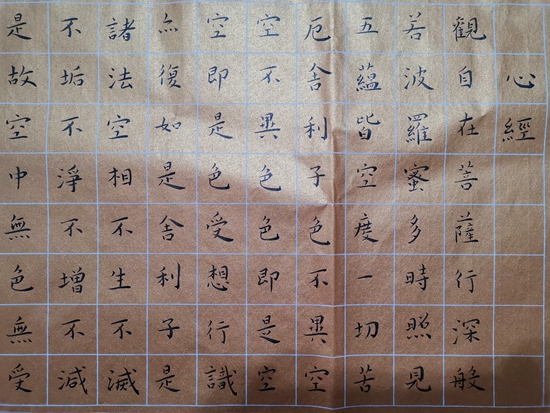 心經
觀自在菩薩行深般
若波羅蜜多時照見
五蘊皆空度一切苦
厄舍利子色不異空
空不異色色即是空
空即是色受想行識
亦復如是舍利子是
諸法空相不生不滅
不垢不淨不增不減
是故空中無色無受